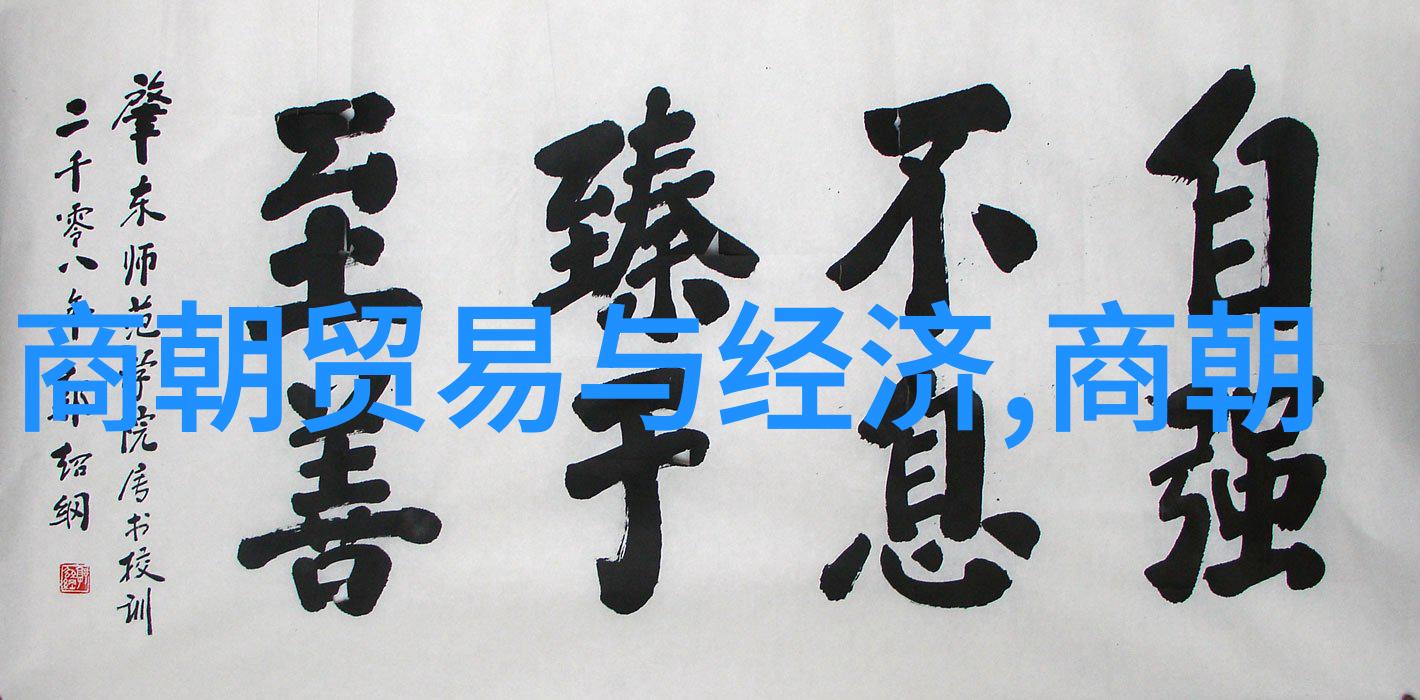 商朝贸易与经济,商朝
自强
不息
臻于
至善
肇东师范学院属书校训
二千零八年绍纲